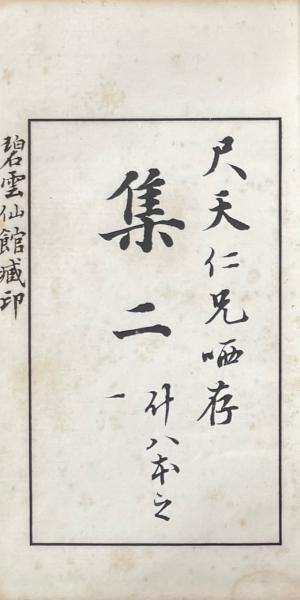 尺天仁兄哂存
集二
什八本之一
碧雲仙館臧印